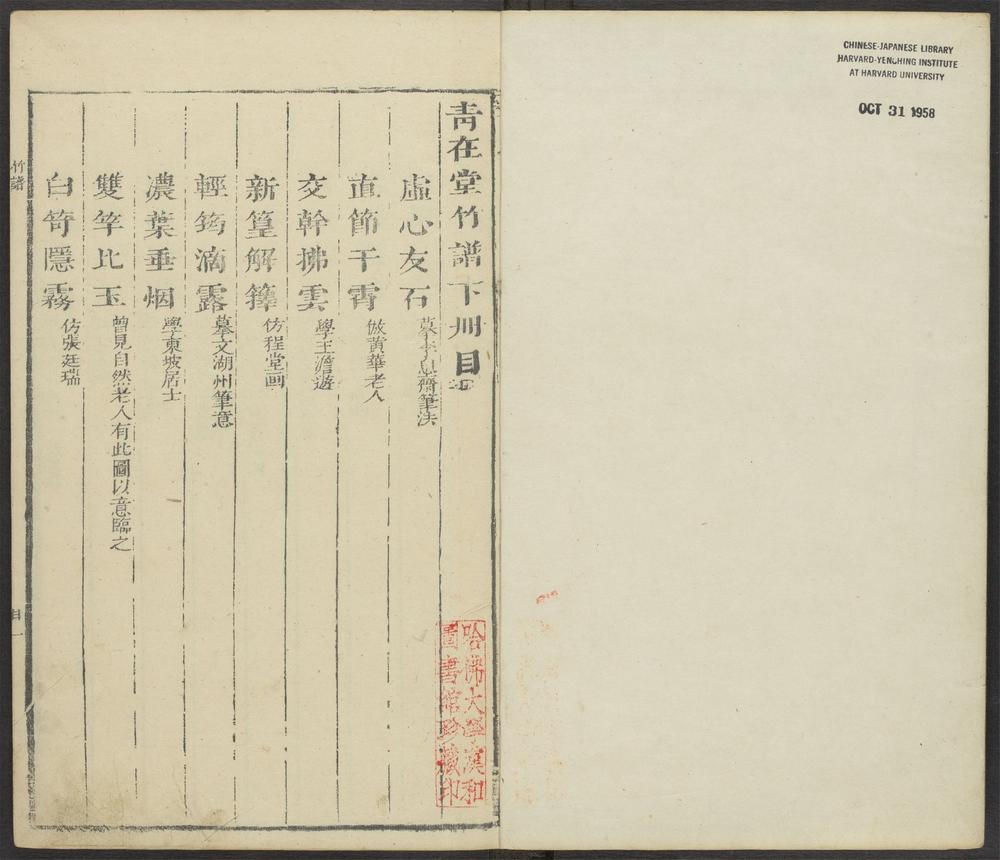 CHINESE-JAPANESE LIBRARY
HARVARD-YENCHING INSTITUTE
AT HARVARD UNIVERSITY
OCT 31 1958
青在堂竹譜下冊目
虛心友石 摹李息齋筆法
直節干霄 倣黃華老人
交幹拂雲 學王澹遊
新篁解籜 仿程堂画
輕筠滴露 摹文湖州筆意
濃葉垂烟 學東坡居士
雙竿比玉 曾見自然老人有此圖以意臨之
白笴隱霧 仿張廷瑞
竹譜
目一
哈佛大學漢和
圖書館珍藏印